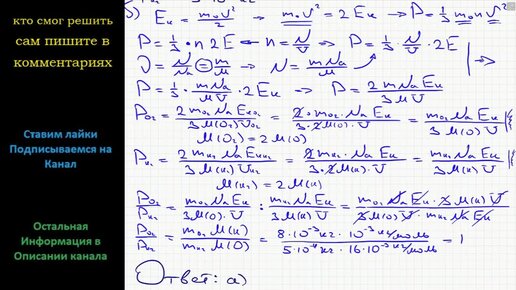 кто смог решить
сам пишите в
комментариях
Ставим лайки
Подписываемся на
Канал
Остальная
Информация в
Описании канала
б) Eк = m₀V²/2 → m₀V² = 2Eк → P = 1/3 m₀nV²
P = 1/3 · n 2E ← n = N/V → P = 1/3 · N/V · 2E
ν = N/Nₐ = m/μ → N = mNₐ/μ
P = 1/3 · mNₐ/μV · 2Eк → P = 2mNₐEк/3μV
P₀₂ = 2m₀₂NₐEк₀₂/3μ(O₂)V₀₂ = 2·m₀₂·NₐEк/3·2μ(O)·V = m₀₂NₐEк/3μ(O)V
μ(O₂) = 2μ(O)
Pн₂ = 2mн₂NₐEкн₂/3μ(н₂)Vн₂ = 2mн₂·NₐEк/3·2μ(н)·V = mн₂NₐEк/3μ(н)V
μ(н₂) = 2μ(н)
P₀₂/Pн₂ = m₀₂NₐEк/3μ(O)V : mн₂NₐEк/3μ(н)V = m₀₂NₐEк·3μ(н)V/3μ(O)V·mн₂NₐEк
P₀₂/Pн₂ = m₀₂μ(н)/mн₂μ(O) = 8·10⁻³кг·10⁻³кг/моль/5·10⁻⁴кг·16·10⁻³кг/моль = 1
Ответ: а)